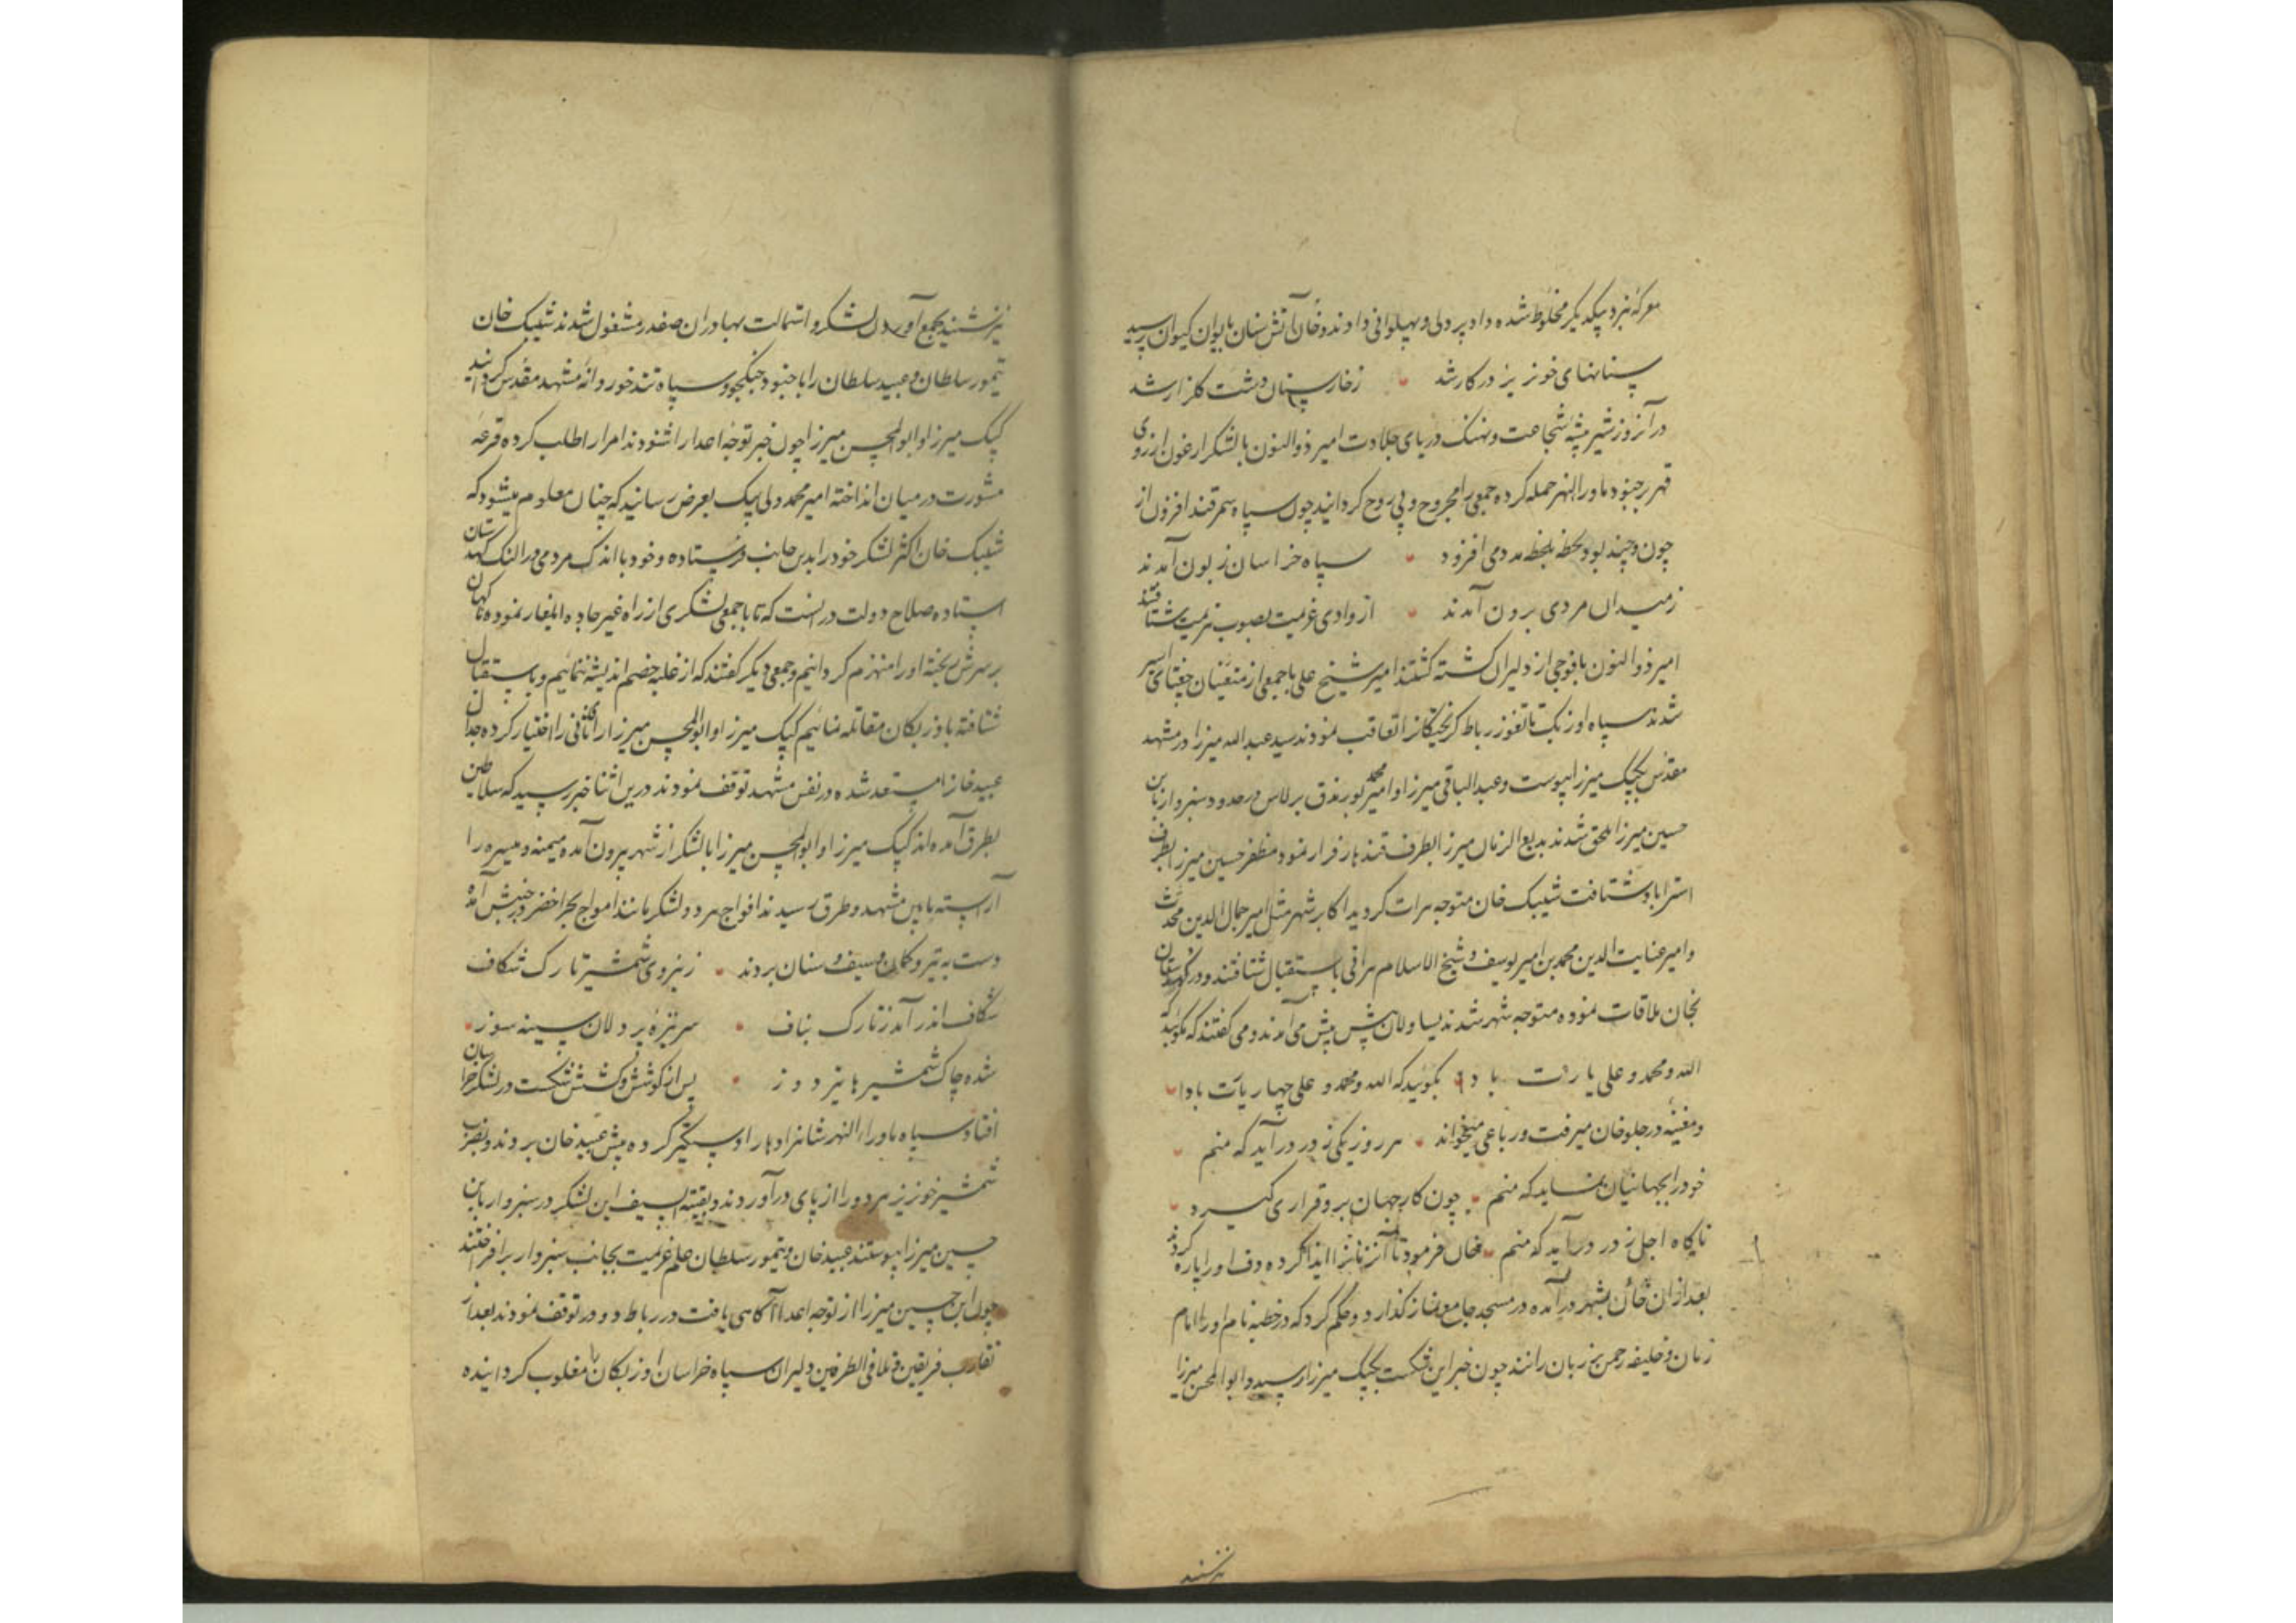 معرکه نبرد بیکدیگر مخلوط شده داد پردلی و پهلوانی دادند و دخان آتش سنان بایوان کیوان رسید
سنانهای خونریز در کار شد زخار سنان دشت کلزار شد
در آنروز شیر بیشه شجاعت و نهنک دریای جلادت امیر ذوالنون با لشکر ارغون از روی
قهر بر جنود ماوراالنهر حمله کرده جمعی را مجروح و بی روح کردانید چون سپاه سمرقند افزون از
چون و چند بود لحظه بلحظه مددمی افزود سپاه خراسان زبون آمدند
ز میدان مردی برون آمدند از وادی عزیمت بصوب هزیمت شتافتند
امیر ذوالنون با فوجی از دلیران کشته کشتند امیر شیخ علی با جمعی از متعینان چغتای اسیر
شدند سپاه اوزبک تا تغوز رباط کریختکانرا تعاقب نمودند سید عبدالله میرزا در مشهد
مقدس بکپک میرزا پیوست و عبدالباقی میرزا و امیر محمد بورندق برلاس در حدود سبزوار بابن
حسین میرزا ملحق شدند بدیع الزمان میرزا بطرف قندهار فرار نمود و مظفر حسین میرزا بطرف
استراباد شتافت شیبک خان متوجه هرات کردید اکابر شهر مثل امیر جمال الدین محدث
و امیر عنایت الدین محمد بن امیر یوسف و شیخ الاسلام هراتی باستقبال شتافتند و در کهدستان
بخان ملاقات نموده متوجه شهر شدند یساولان پیش پیش می آمدند و می کفتند که بکوئید که
الله و محمد و علی یارت باد بکوئید که الله و محمد و علی چهار یارت بادا
و مغنیه در جلو خان میرفت و رباعی میخواند هر روز یکی ز در درآید که منم
خود را بجهانیان نماید که منم چون کار جهان برو قراری کیرد
ناکاه اجل ز در درآید که منم خان فرمود تا آنزنانرا ایذا کرده دف او را پاره کردند
بعد از ان خان بشهر درآمده در مسجد جامع نماز کذارد و حکم کرد که در خطبه نام او را امام
زمان و خلیفه رحمن بر زبان رانند چون خبر این شکست بکپک میرزا رسید و ابوالمحسن میرزا
نیز شنید
نیز شنید بجمع آوردن لشکر و استمالت بهادران صفدر مشغول شدند شیبک خان
تیمور سلطان و عبید سلطان را با جنود جنکجو و سپاه تندخو روانه مشهد مقدس کردانید
کپک میرزا و ابوالمحسن میرزا چون خبر توجه اعدا را شنودند امرا را طلب کرده قرعه
مشورت در میان انداخته امیر محمد ولی بیک بعرض رسانید که چنان معلوم میشود که
شیبک خان اکثر لشکر خود را بدین جانب فرستاده و خود با اندک مردمی در النک کهدستان
استاده صلاح دولت در انست که تا با جمعی لشکری از راه غیر جاده ایلغار نموده ناکهان
بر سرش ریخته او را منهزم کردانیم و جمعی دیکر کفتند که از غلبه خصم اندیشه ننمائیم و باستقبال
شتافته با اوزبکان مقاتله نمائیم کپک میرزا و ابوالمحسن میرزا رای ثانی را اختیار کرده جدال
عبید خانرا مستعد شده در نفس مشهد توقف نمودند درین اثنا خبر رسید که سلاطین
بطرق آمده اند کپک میرزا و ابوالمحسن میرزا با لشکر از شهر بیرون آمده میمنه و میسره را
آراسته مابین مشهد و طرق رسیدند افواج هر دو لشکر مانند امواج بحر اخضر در جنبش آمده
دست به تیر و کمان و سیف و سنان بردند ز نیروی شمشیر تارک شکاف
شکاف اندر آمد ز تارک بناف سر نیزه پردلان سینه سوز
شده چاک شمشیرها نیزه دوز پس از کوشش و کشش شکست در لشکر خراسان
افتاد سپاه ماوراء النهر شاهزادها را دستکیر کرده پیش عبید خان بردند و بضرب
شمشیر خونریز هر دو را از پای درآوردند و بقیة السیف این لشکر در سبزوار بابن
حسین میرزا پیوستند عبید خان و تیمور سلطان علم عزیمت بجانب سبزوار برافراختند
چون ابن حسین میرزا از توجه اعدا آکاهی یافت در رباط دودر توقف نمودند بعد از
تقارب فریقین و تلاقی الطرفین دلیران سپاه خراسان اوزبکان را مغلوب کردانیده